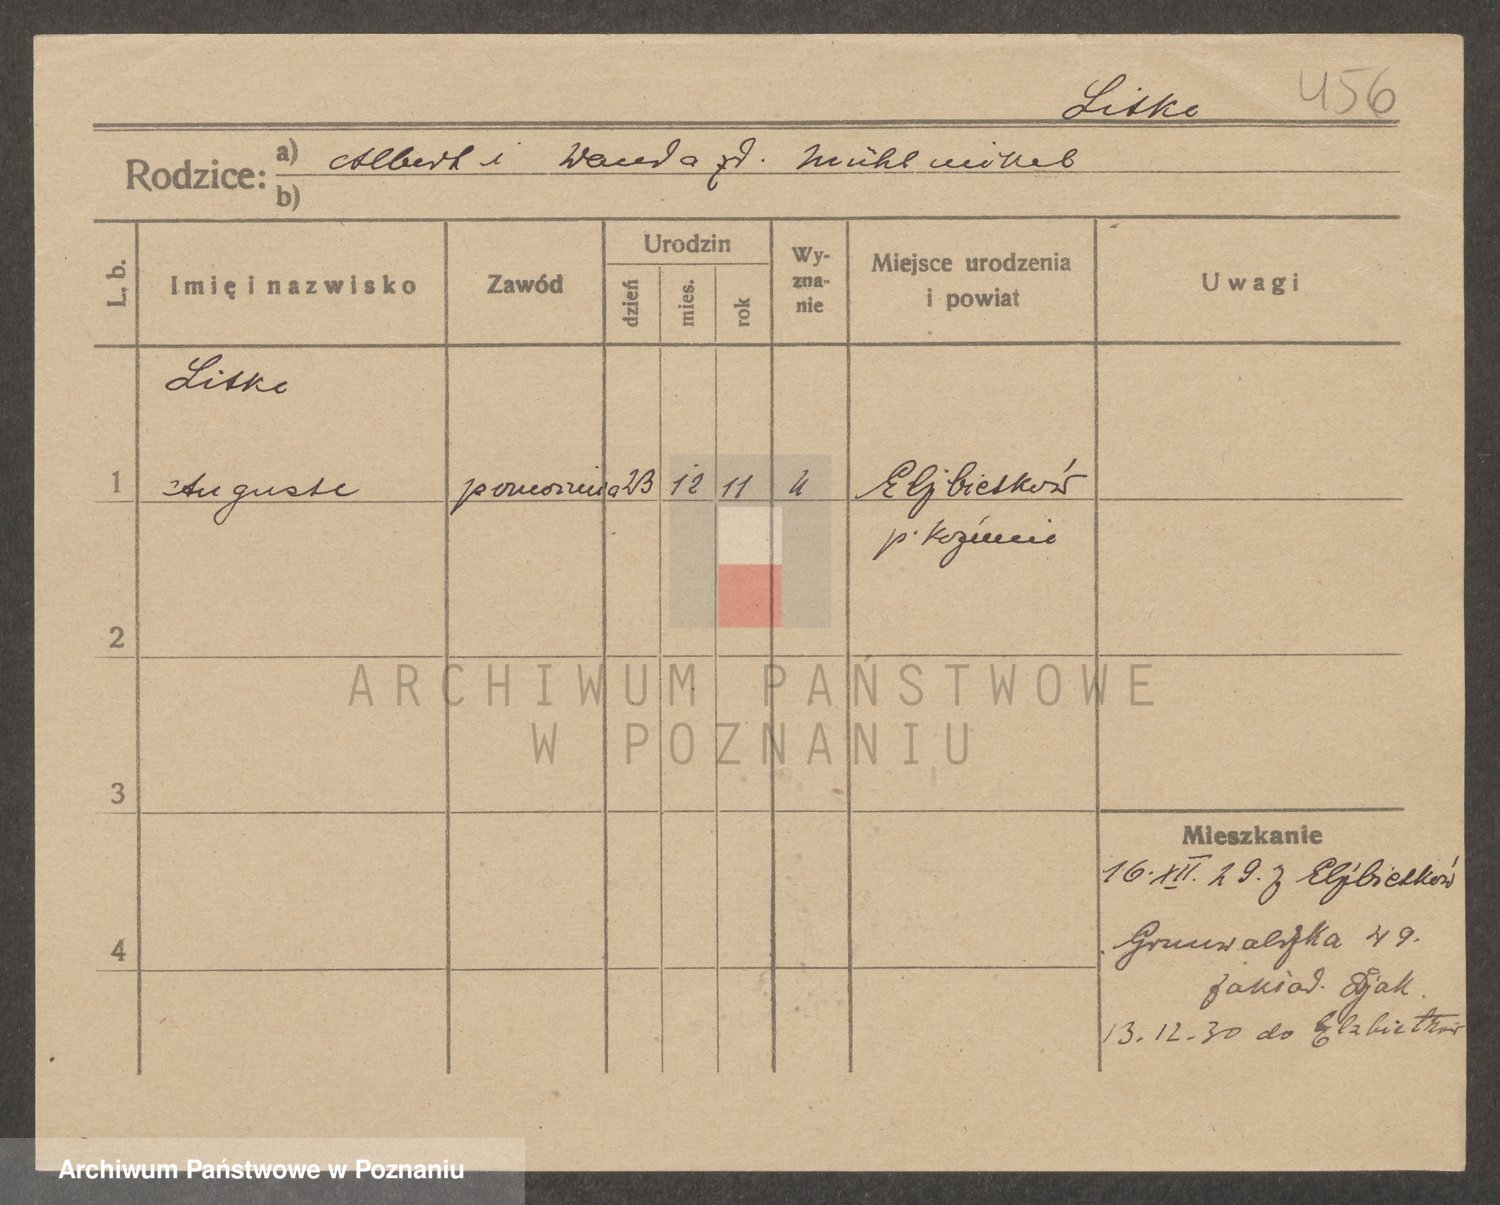 Litke 456
Rodzice: a) Albert i Wanda zd.
b)
L. b. Imię i nazwisko Zawód Urodzin dzień mies. rok Wyznanie Miejsce urodzenia i powiat Uwagi
Litke
1 Auguste 23 12 11 Elżbietków
p. Koźmin
2
ARCHIWUM PAŃSTWOWE
W POZNANIU
3
Mieszkanie
16. XII. 29. z Elżbietków
4 Grunwaldzka 49.
zakład.
13.12.30 do Elżbietków
Archiwum Państwowe w Poznaniu